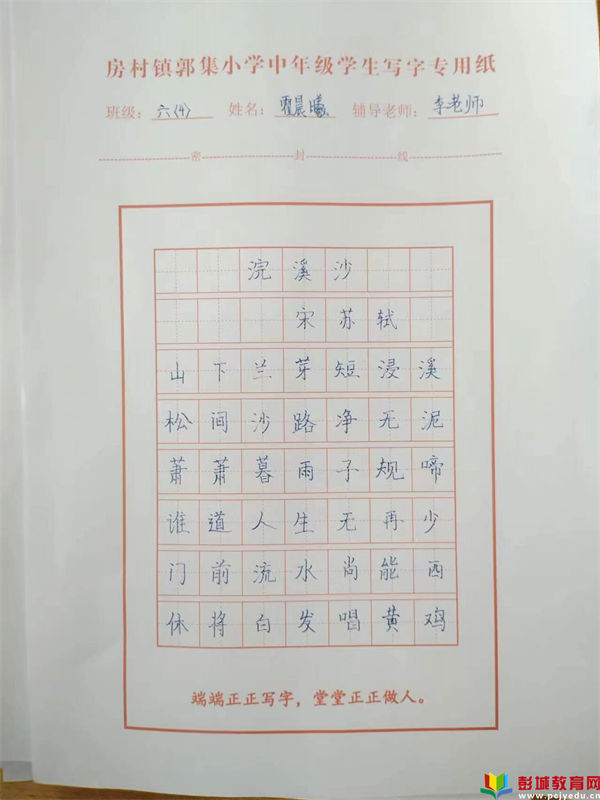 房村镇郭集小学中年级学生写字专用纸
班级：六(4) 姓名：霍晨曦 辅导老师：李老师
密 封 线
浣溪沙
宋 苏轼
山下兰芽短浸溪
松间沙路净无泥
萧萧暮雨子规啼
谁道人生无再少
门前流水尚能西
休将白发唱黄鸡
端端正正写字，堂堂正正做人。
彭城教育网
www.pcjyedu.cn